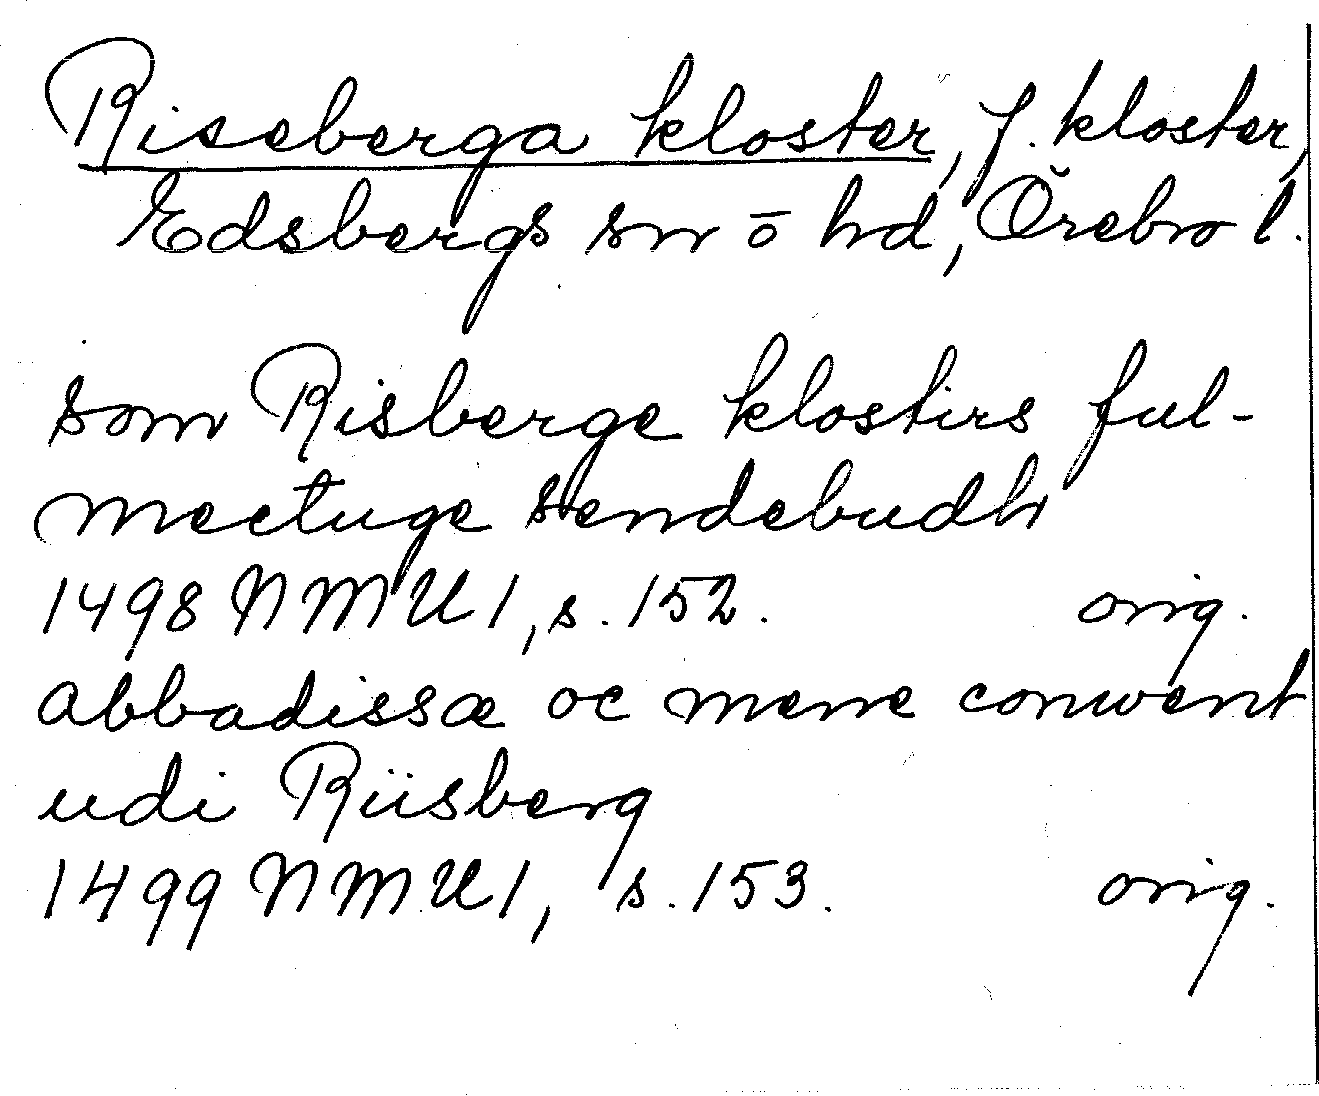 Riseberga kloster, f. kloster,
Edsbergs sn o hd, Örebro l.
som Risberge klostirs ful-
mectuge sendebudh
1498 NMU1, s. 152. orig.
abbadissæ oc mene conwent
udi Riisberg
1499 NMU1, s. 153. orig.